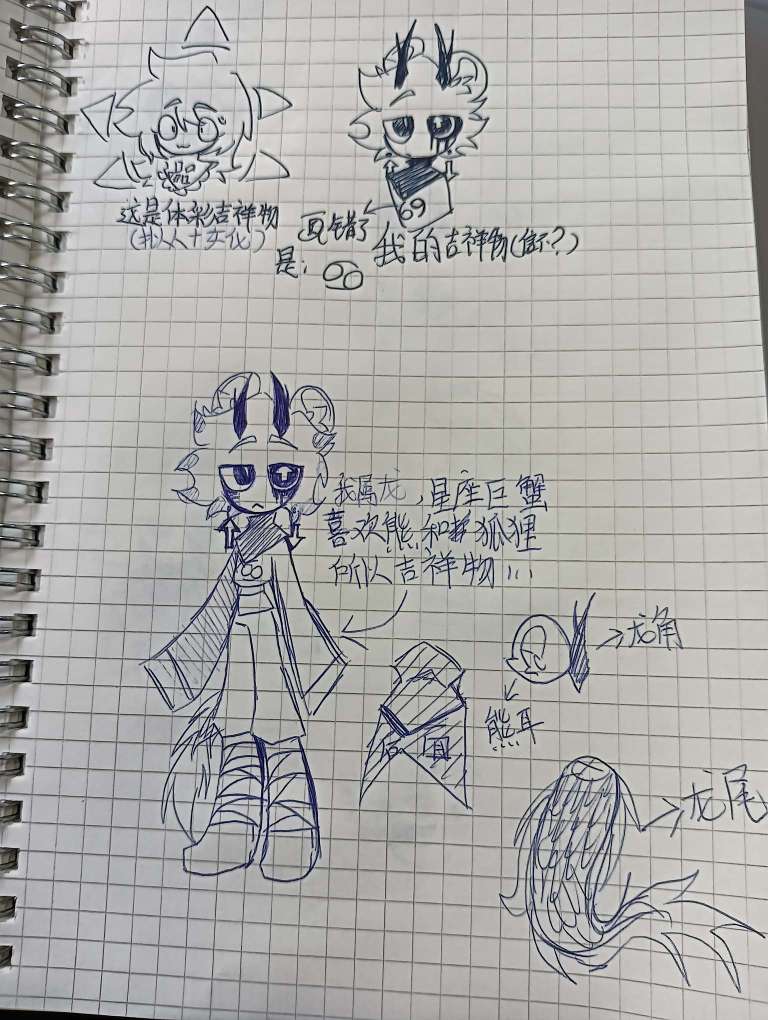 这是体彩吉祥物
(拟人+实化)
69
画错了
是：♋
我的吉祥物(信不?)
我属龙,星座巨蟹
喜欢熊和狐狸
所以吉祥物...
龙角
熊耳
后面
龙尾